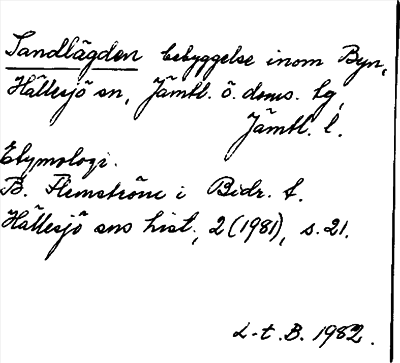 Sandlägden bebyggelse inom Byn,
Hällesjö sn, Jämtl. ö. doms. tg,
Jämtl. l.
Etymologi.
B. Flemström i Bidr. t.
Hällesjö sns hist., 2 (1981), s. 21.
L-t. B. 1982.